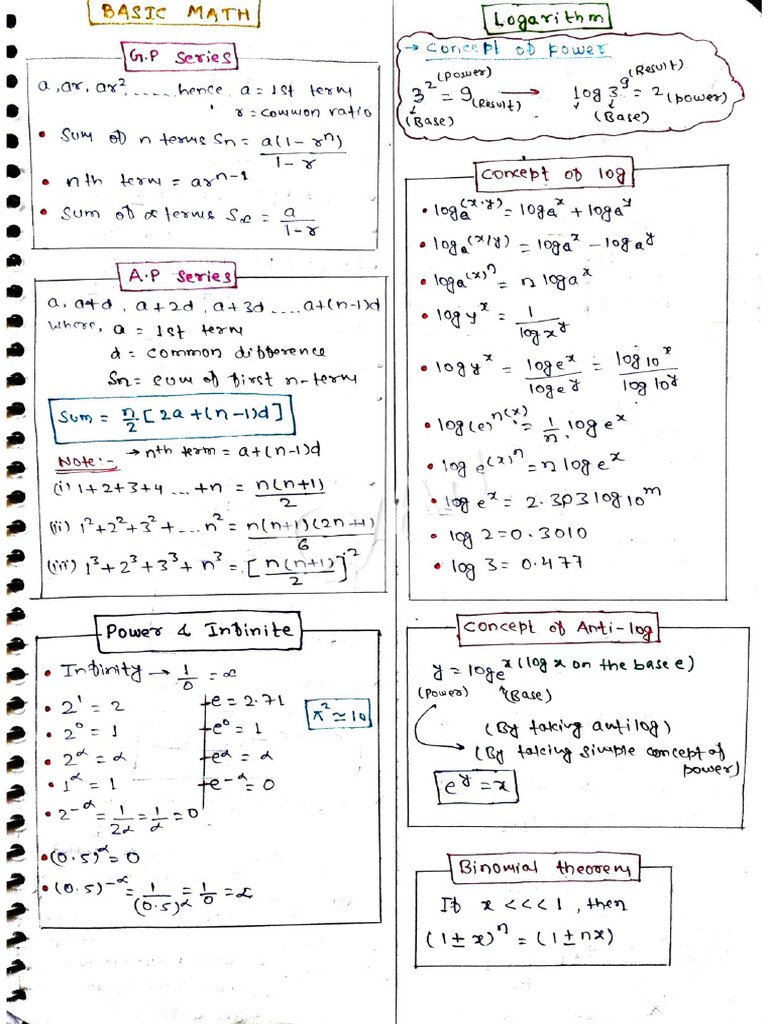 BASIC MATH
G.P Series
a, ar, ar², ...... hence, a = 1st term
r = common ratio
• Sum of n terms Sn = a(1 - rⁿ) / 1 - r
• nth term = arⁿ⁻¹
• Sum of ∝ terms S∝ = a / 1 - r
A.P Series
a, a+d, a+2d, a+3d ..... a+(n-1)d
where, a = 1st term
d = common difference
Sn = sum of first n-term
Sum = n/2 [2a + (n-1)d]
Note:- → nth term = a+(n-1)d
(i) 1+2+3+4 ... +n = n(n+1) / 2
(ii) 1²+2²+3²+... n² = n(n+1)(2n+1) / 6
(iii) 1³+2³+3³+n³ = [n(n+1) / 2]²
Power & Infinite
• Infinity → 1/0 = ∝
• 2¹ = 2
• 2⁰ = 1
• 2^∝ = ∝
• 1^∝ = 1
• 2^-∝ = 1/2∝ = 1/∝ = 0
• (0.5)^∝ = 0
• (0.5)^-∝ = 1/(0.5)^∝ = 1/0 = ∝
e = 2.71
e⁰ = 1
e^∝ = ∝
e^-∝ = 0
π² ≃ 10
Logarithm
→ Concept of power
3² (Power) = 9 (Result) → log 3⁹ (Result) = 2 (power)
(Base) (Base)
Concept of log
• log a^(x·y) = log a^x + log a^y
• log a^(x/y) = log a^x - log a^y
• log a^(x)^n = n log a^x
• log y^x = 1 / log x^y
• log y^x = log e^x / log e^y = log 10^x / log 10^y
• log(e)^n(x) = 1/n . log e^x
• log e^(x)^n = n log e^x
• log e^x = 2.303 log 10^m
• log 2 = 0.3010
• log 3 = 0.477
Concept of Anti-log
y = log e^x (log x on the base e)
(Power) (Base)
(By taking antilog)
(By taking simple concept of
power)
e^y = x
Binomial theorem
If x <<< 1, then
(1 ± x)^n = (1 ± nx)